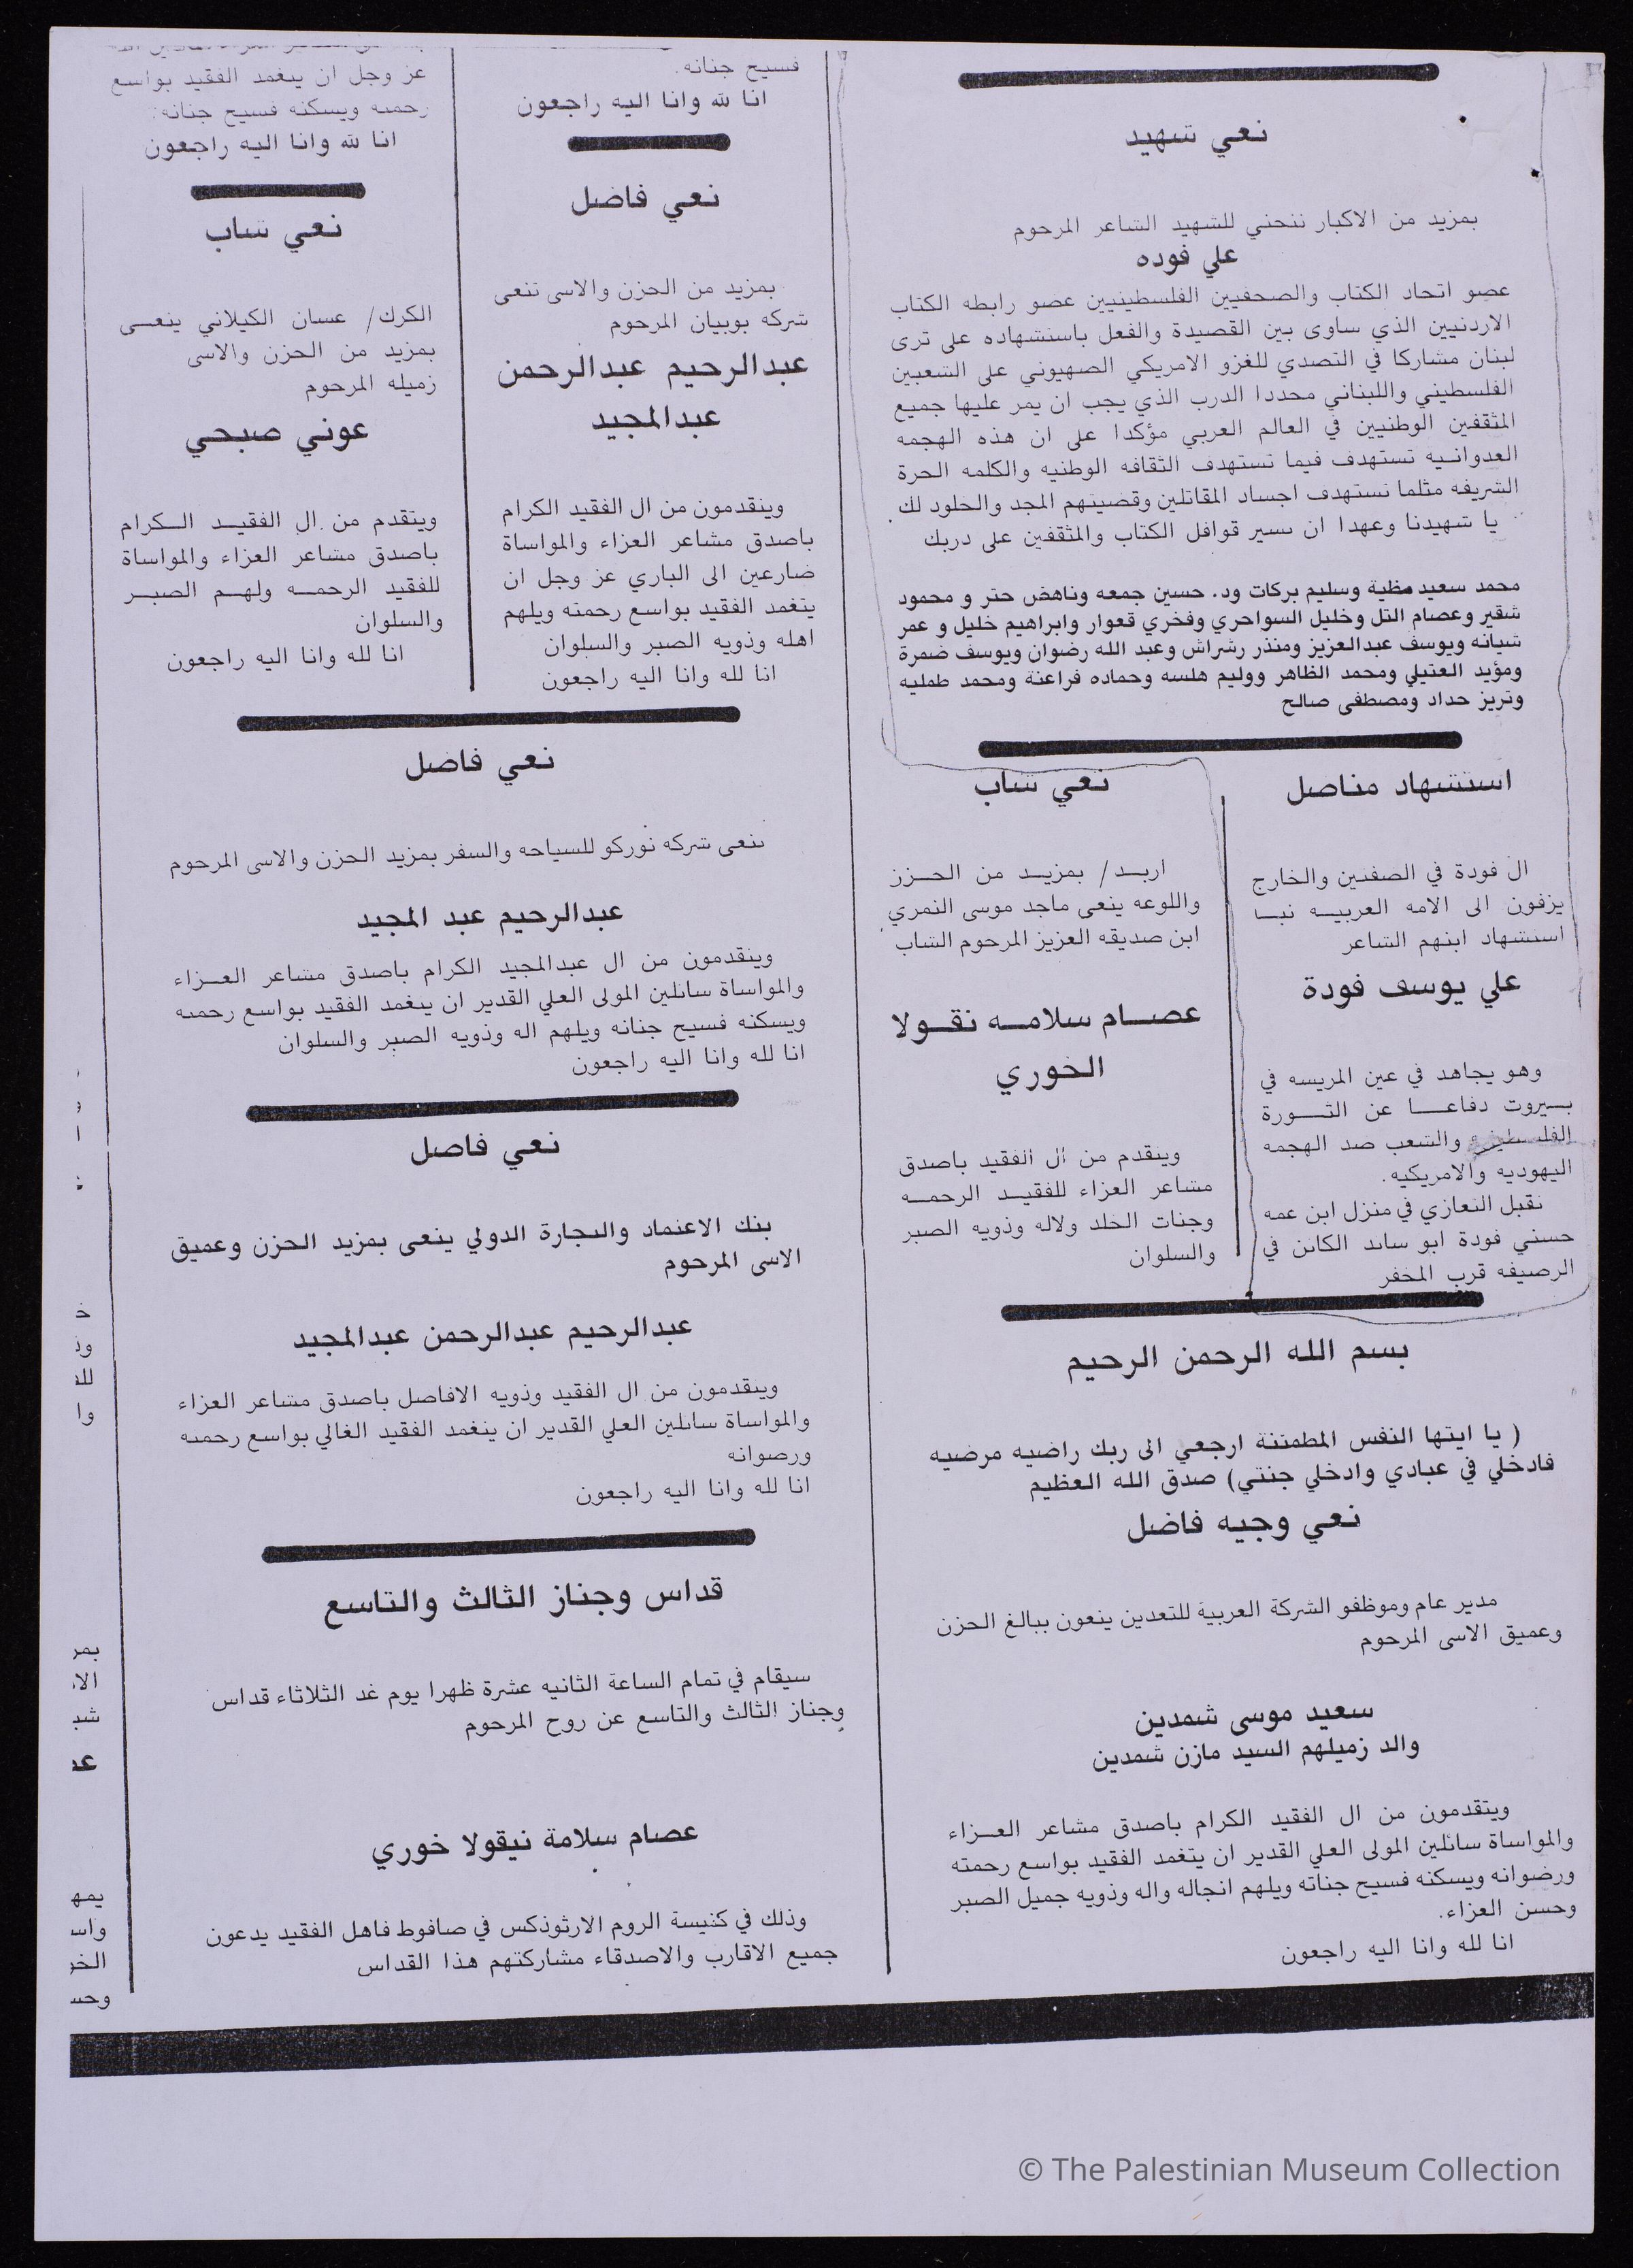 نعي شهيد
بمزيد من الاكبار ننحني للشهيد الشاعر المرحوم
علي فوده
عضو اتحاد الكتاب والصحفيين الفلسطينيين عضو رابطه الكتاب
الاردنيين الذي ساوى بين القصيدة والفعل باستشهاده على ترى
لبنان مشاركا في التصدي للغزو الامريكي الصهيوني على الشعبين
الفلسطيني واللبناني محددا الدرب الذي يجب ان يمر عليها جميع
المثقفين الوطنيين في العالم العربي مؤكدا على ان هذه الهجمه
العدوانيه تستهدف فيما تستهدف الثقافه الوطنيه والكلمه الحرة
الشريفه مثلما تستهدف اجساد المقاتلين وقضيتهم المجد والخلود لك
يا شهيدنا وعهدا ان نسير قوافل الكتاب والمثقفين على دربك
محمد سعيد مظية وسليم بركات ود. حسين جمعه وناهض حتر و محمود
شقير وعصام التل وخليل السواحري وفخري قعوار وابراهيم خليل و عمر
شبانه ويوسف عبدالعزيز ومنذر رشراش وعبد الله رضوان ويوسف ضمرة
ومؤيد العتيلي ومحمد الظاهر ووليم هلسه وحماده فراعنة ومحمد طمليه
وتريز حداد ومصطفى صالح
استشهاد مناضل
ال فودة في الضفتين والخارج
يزفون الى الامه العربيه نبا
استشهاد ابنهم الشاعر
علي يوسف فودة
وهو يجاهد في عين المريسه في
بيروت دفاعا عن الثورة
الفلسطينيه والشعب ضد الهجمه
اليهوديه والامريكيه.
تقبل التعازي في منزل ابن عمه
حسني فودة ابو سائد الكائن في
الرصيفه قرب المخفر
نعي شاب
اربد/ بمزيد من الحزن
واللوعه ينعى ماجد موسى النمري
ابن صديقه العزيز المرحوم الشاب
عصام سلامه نقولا
الخوري
ويتقدم من ال الفقيد باصدق
مشاعر العزاء للفقيد الرحمه
وجنات الخلد ولاله وذويه الصبر
والسلوان
بسم الله الرحمن الرحيم
( يا ايتها النفس المطمئنة ارجعي الى ربك راضيه مرضيه
فادخلي في عبادي وادخلي جنتي) صدق الله العظيم
نعي وجيه فاضل
مدير عام وموظفو الشركة العربية للتعدين ينعون ببالغ الحزن
وعميق الاسى المرحوم
سعيد موسى شمدين
والد زميلهم السيد مازن شمدين
ويتقدمون من ال الفقيد الكرام باصدق مشاعر العزاء
والمواساة سائلين المولى العلي القدير ان يتغمد الفقيد بواسع رحمته
ورضوانه ويسكنه فسيح جناته ويلهم انجاله واله وذويه جميل الصبر
وحسن العزاء.
انا لله وانا اليه راجعون
فسيح جنانه.
انا لله وانا اليه راجعون
نعي فاضل
بمزيد من الحزن والاسى تنعى
شركه بوبيان المرحوم
عبدالرحيم عبدالرحمن
عبدالمجيد
ويتقدمون من ال الفقيد الكرام
باصدق مشاعر العزاء والمواساة
ضارعين الى الباري عز وجل ان
يتغمد الفقيد بواسع رحمته ويلهم
اهله وذويه الصبر والسلوان
انا لله وانا اليه راجعون
عز وجل ان يتغمد الفقيد بواسع
رحمته ويسكنه فسيح جنانه.
انا لله وانا اليه راجعون
نعي شاب
الكرك/ غسان الكيلاني ينعى
بمزيد من الحزن والاسى
زميله المرحوم
عوني صبحي
ويتقدم من ال الفقيد الكرام
باصدق مشاعر العزاء والمواساة
للفقيد الرحمه ولهم الصبر
والسلوان
انا لله وانا اليه راجعون
نعي فاضل
تنعى شركه نوركو للسياحه والسفر بمزيد الحزن والاسى المرحوم
عبدالرحيم عبد المجيد
ويتقدمون من ال عبدالمجيد الكرام باصدق مشاعر العزاء
والمواساة سائلين المولى العلي القدير ان يتغمد الفقيد بواسع رحمته
ويسكنه فسيح جنانه ويلهم اله وذويه الصبر والسلوان
انا لله وانا اليه راجعون
نعي فاضل
بنك الاعتماد والتجارة الدولي ينعى بمزيد الحزن وعميق
الاسى المرحوم
عبدالرحيم عبدالرحمن عبدالمجيد
ويتقدمون من ال الفقيد وذويه الافاضل باصدق مشاعر العزاء
والمواساة سائلين العلي القدير ان يتغمد الفقيد الغالي بواسع رحمته
ورضوانه
انا لله وانا اليه راجعون
قداس وجناز الثالث والتاسع
سيقام في تمام الساعة الثانيه عشرة ظهرا يوم غد الثلاثاء قداس
وجناز الثالث والتاسع عن روح المرحوم
عصام سلامة نيقولا خوري
وذلك في كنيسة الروم الارثوذكس في صافوط فاهل الفقيد يدعون
جميع الاقارب والاصدقاء مشاركتهم هذا القداس
© The Palestinian Museum Collection